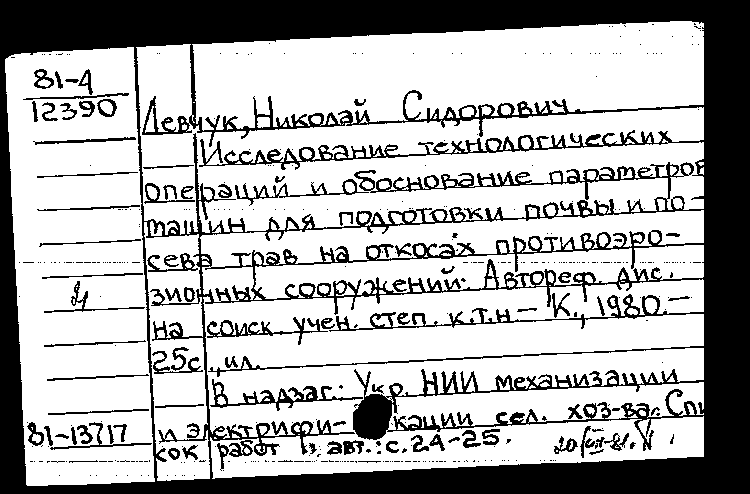 81-4
12390
Девчук, Николай Сидорович.
Исследование технологических
операций и обоснование параметров
машин для подготовки почвы и по-
сева трав на откосах противоэро-
зионных сооружений. Автореф. дис.
на соиск. учен. степ. к.т.н. - К., 1980. -
25с., ил.
В надзаг.: Укр. НИИ механизации
81-13717
и электрифи- кации сел. хоз-ва. Спи
сок работ авт.: с. 24-25.